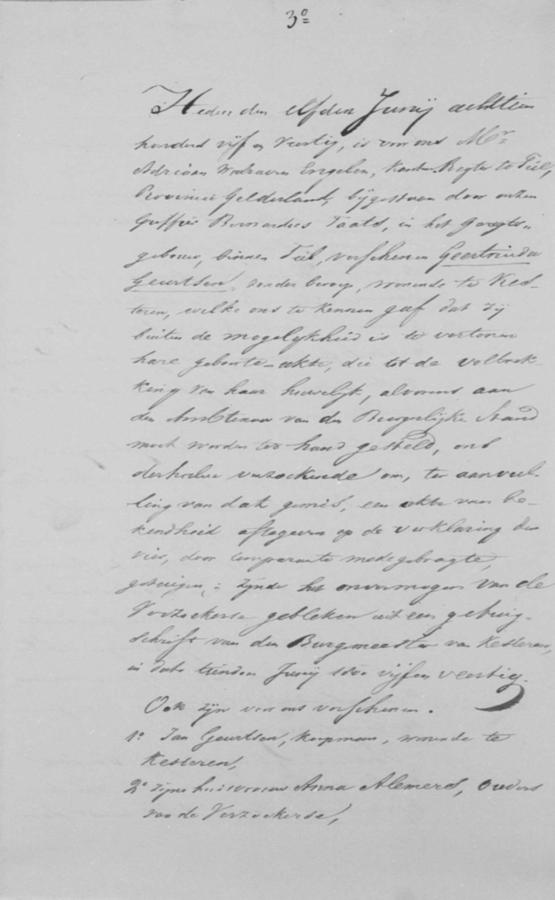 3º
Heden den elfden Junij achttien
honderd vijf en veertig, is voor ons Mr
Adriaan Engelen, Kanton Regter te Tiel,
Provincie Gelderland, bijgestaan door onzen
Griffier Bernardus Taats, in het Geregts-
gebouw, binnen Tiel, verschenen Geertruida
Geurtsen, zonder beroep, wonende te Kes-
teren, welke ons te kennen gaf dat zij
buiten de mogelijkheid is te vertonen
hare geboorte-akte, die tot de voltrek-
king van haar huwelijk, alvorens aan
den Ambtenaar van den Burgelijke Stand
moet worden ter hand gesteld, ons
derhalve verzoekende om, ter aanvul-
ling van dat gemis, een akte van be-
kendheid aftegeven op de verklaring der
vier, door comparante medegebragte,
getuigen; zijnde het onvermogen van de
Verzoekerse gebleken uit een getuig-
schrift van den Burgmeester van Kesteren,
in dato tienden Junij 1800 vijf en veertig.
Ook zijn voor ons verschenen.
1º Jan Geurtsen, koopman, wonende te
Kesteren,
2º zijne huisvrouw Anna Alemerd, ouders
van de Verzoekerse,